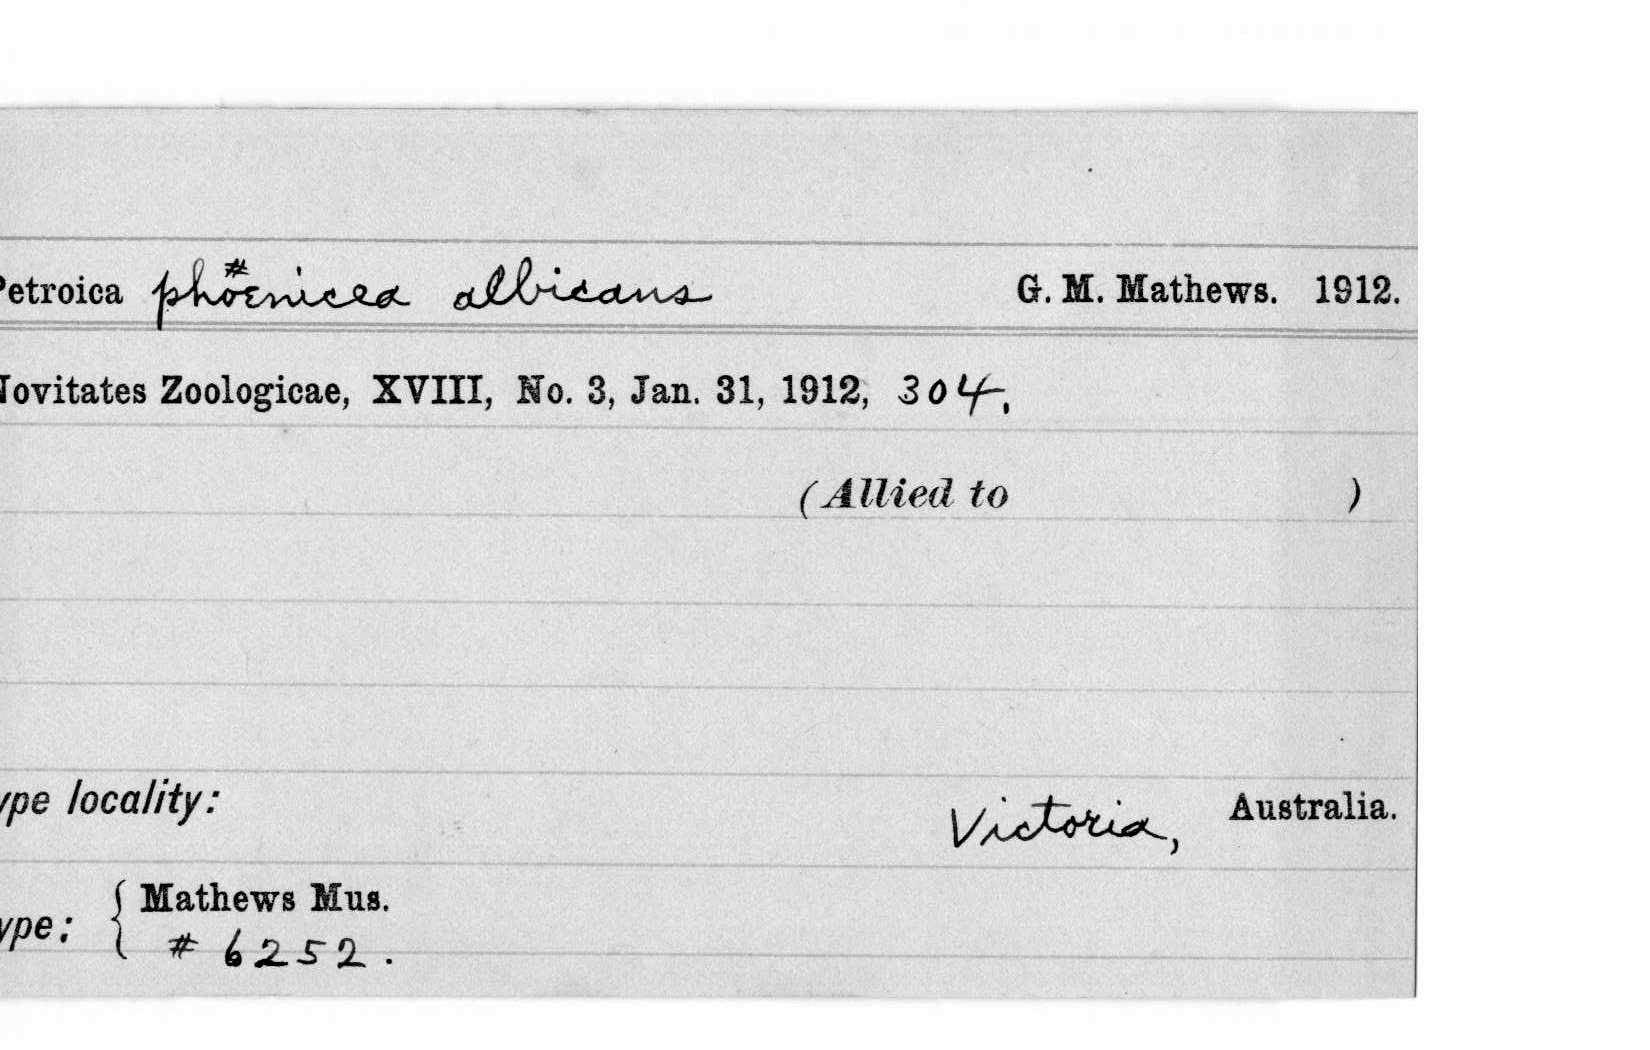 Petroica phœnicea albicans G. M. Mathews. 1912.
Novitates Zoologicae, XVIII, No. 3, Jan. 31, 1912, 304.
(Allied to )
ype locality: Victoria, Australia.
ype: { Mathews Mus.
# 6252.